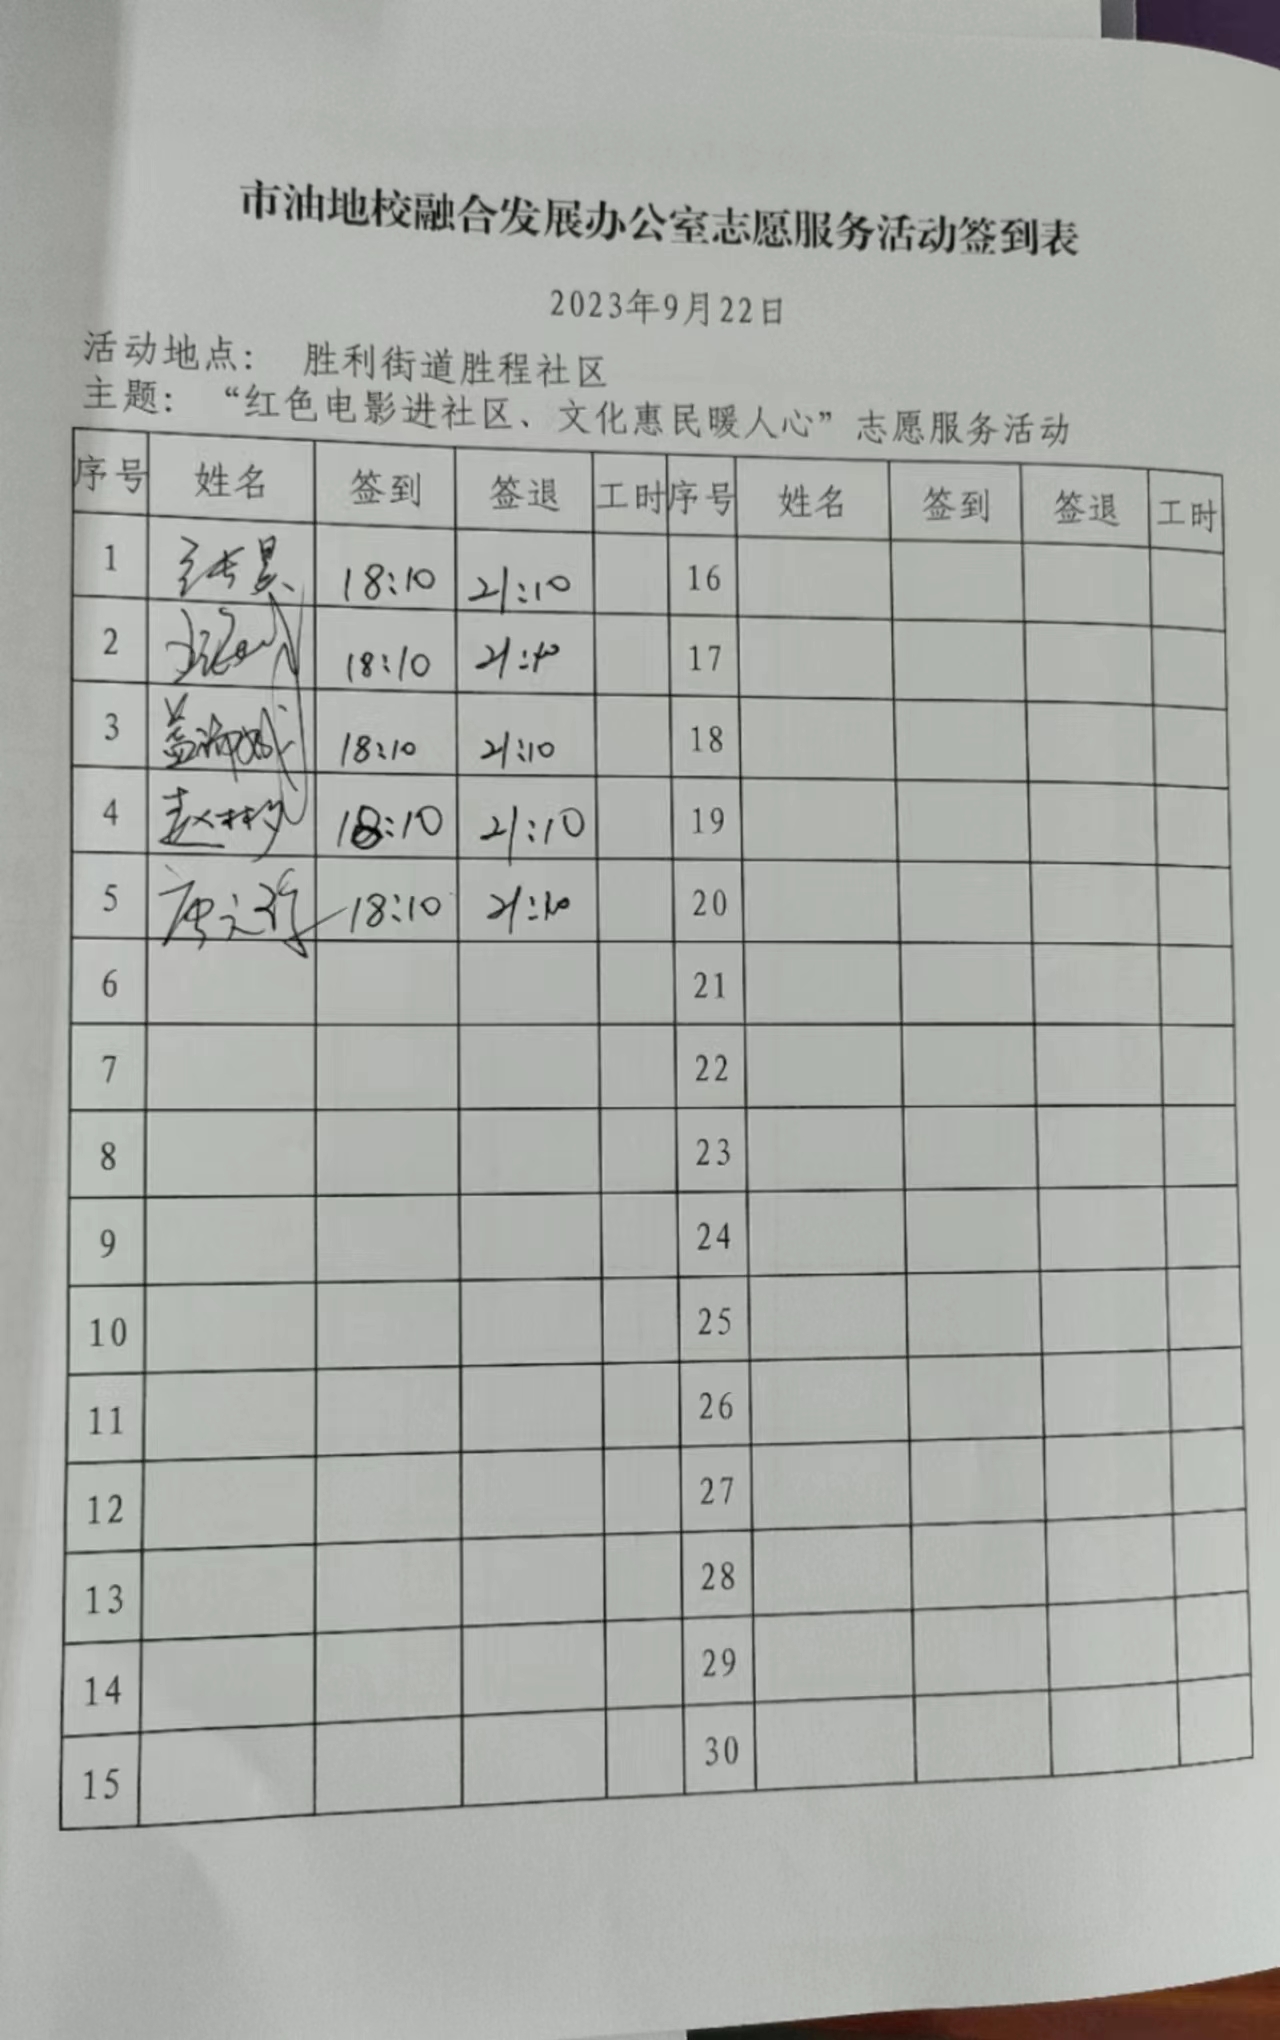 市油地校融合发展办公室志愿服务活动签到表
2023年9月22日
活动地点： 胜利街道胜程社区
主题：“红色电影进社区、文化惠民暖人心”志愿服务活动
序号 姓名 签到 签退 工时 序号 姓名 签到 签退 工时
1 18:10 21:10 16
2 18:10 21:10 17
3 18:10 21:10 18
4 赵 18:10 21:10 19
5 唐 18:10 21:10 20
6 21
7 22
8 23
9 24
10 25
11 26
12 27
13 28
14 29
15 30